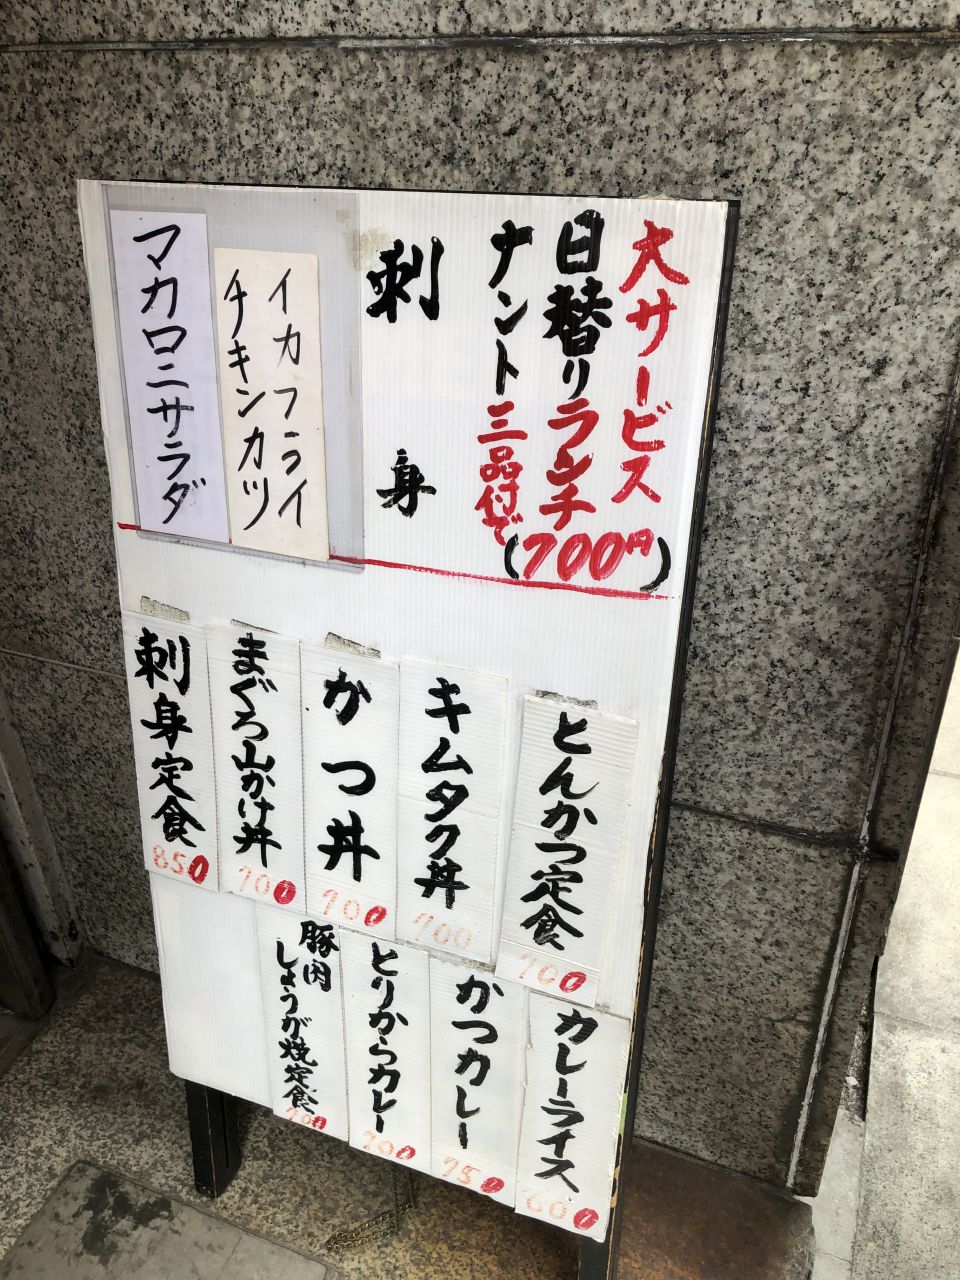 大サービス
日替りランチ
(700円)
ナント三品付で
刺身
イカフライ
チキンカツ
マカロニサラダ
とんかつ定食
700
キムタク丼
700
かつ丼
700
まぐろ山かけ丼
700
刺身定食
850
カレーライス
600
かつカレー
750
とりからカレー
700
豚肉
しょうが焼定食
700